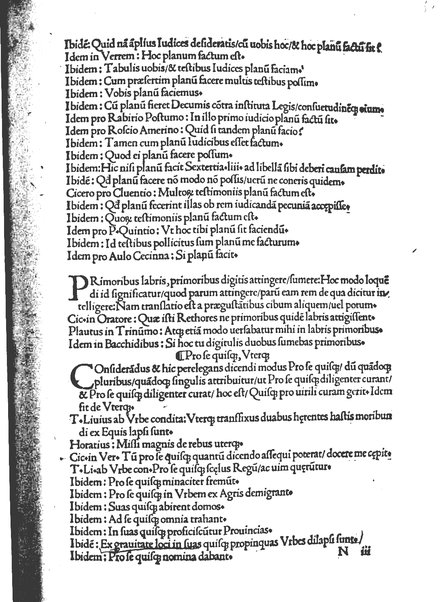 Ibidē: Quid nā āplius Iudices desideratis/ cū uobis hoc/ & hoc planū factū sit?
Idem in Verrem: Hoc planum factum est.
Ibidem: Tabulis uobis/ & testibus Iudices planū faciam.
Ibidem: Cum præsertim planū facere multis testibus possim.
Ibidem: Vobis planū faciemus.
Ibidem: Cū planū fieret Decumis cōtra instituta Legis/ consuetudinēq; eium.
Idem pro Rabirio Postumo: In illo primo iudicio planū factū sit.
Idem pro Roscio Amerino: Quid si tandem planū facio?
Ibidem: Tamen cum planū Iudicibus esset factum.
Ibidem: Quod ei planū facere possum.
Ibidem: Hic nisi planū facit Sextertia.iiii. ad libellā sibi deberi causam perdit.
Ibidē: Qd planū facere nō modo nō possis/ uerū ne coneris quidem.
Cicero pro Cluentio: Multoꝝ testimoniis planum factum est.
Ibidem: Qd planū fecerint illas ob rem iudicandā pecuniā accepisse.
Ibidem: Quoꝝ testimoniis planum factum est.
Idem pro P. Quintio: Vt hoc tibi planū sit faciendū.
Ibidem: Id testibus pollicitus sum planū me facturum.
Idem pro Aulo Cecinna: Si planū facit.
PRimoribus labris, primoribus digitis attingere/ sumere: Hoc modo loquē
di id significatur/ quod parum attingere/ parū eam rem de qua dicitur in
telligere: Nam translatio est a prægustātibus cibum aliquem/ uel potum.
Cic. in Oratore: Quæ isti Rethores ne primoribus quidē labris attigissent.
Plautus in Trinūmo: Atq; etiā modo uersabatur mihi in labris primoribus.
Idem in Bacchidibus: Si hoc tu digitulis duobus sumebas primoribus.
¶ Pro se quisq;, Vterq;
COnsiderādus & hic perelegans dicendi modus Pro se quisq;/ dū quādoq;
pluribus/ quādoq; singulis attribuitur/ ut Pro se quisq; diligenter curant/
& Pro se quisq; diligenter curat/ hoc est/ Quisq; pro uirili curam gerit. Idem
fit de Vterq;.
T. Liuius ab Vrbe condita: Vterq; transfixus duabus hęrentes hastis moribun
di ex Equis lapsi sunt.
Horatius: Missi magnis de rebus uterq;.
Cic. in Ver. Tū pro se quisq; quantū dicendo assequi poterat/ docere me cępit.
T. Li. ab Vrbe con. Pro se quisq; scęlus Regū/ ac uim quęrūtur.
Ibidem: Pro se quisq; minaciter fremūt.
Ibidem: Pro se quisq; in Vrbem ex Agris demigrant.
Ibidem: Suas quisq; abirent domos.
Ibidem: Ad se quisq; omnia trahant.
Ibidem: In suas quisq; proficiscūtur Prouincias.
Ibidē: Ex grauitate loci in suas quisq; propinquas Vrbes dilapsi sunt.
Ibidem: Pro se quisq; nomina dabant.
N iii